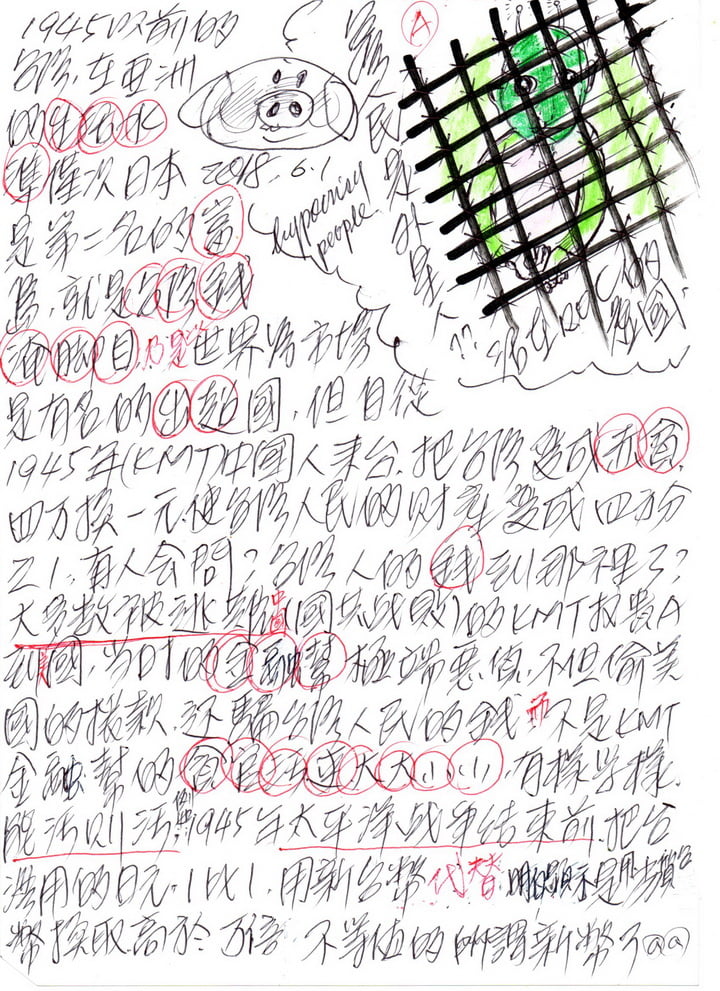 1945以前的
台灣, 在亞洲
的生活水
準僅次日本
2018-6.1
是第二名的富
島, 就是台灣錢
淹脚目 乃是世界皆市場
是有名的出超國, 但自從
1945年(KMT)中國人來台, 把台灣變成赤貧
四万換一元使台灣人民的財産變成四万分
之1, 有人会問? 台灣人的錢到那裡了?
大多數被逃難中國(國共战败)的KMT权貴A
到美國, 当时的金融幫極端惡值, 不但偷美
國的撥款, 还騙台灣人民的錢 而不是KMT
金融幫的貪官五逆大大小小, 有樣学樣.
能活则活 1945年太平洋战争结束前, 把台
灣用的日元, 1比1, 用新台幣代替, 明顕示是用台
幣換取高於万倍 不等值的所謂新幣了
hypocrisy
people
台灣人民是外星人??
活在ROC的
監國
A
(aa)